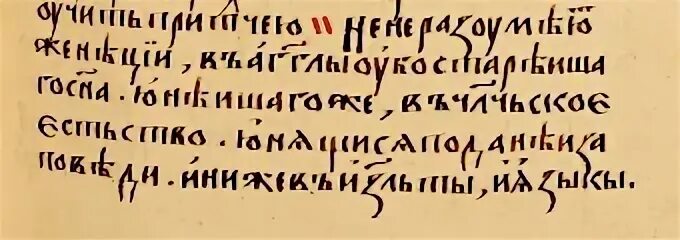 оучить притчею ꙵ не неразоумѣю҅
же нѣцїи , въ а҆гг҃лы оу҆бо старѣиша
го сн҃а . ю҆нѣишаго же , въ чл҃чьское
єстьство . ю҆нꙗшисѧ подани и за
повѣди . и҆ни же въ и҆з҃льты , и҆ ꙗ҆зыкы .